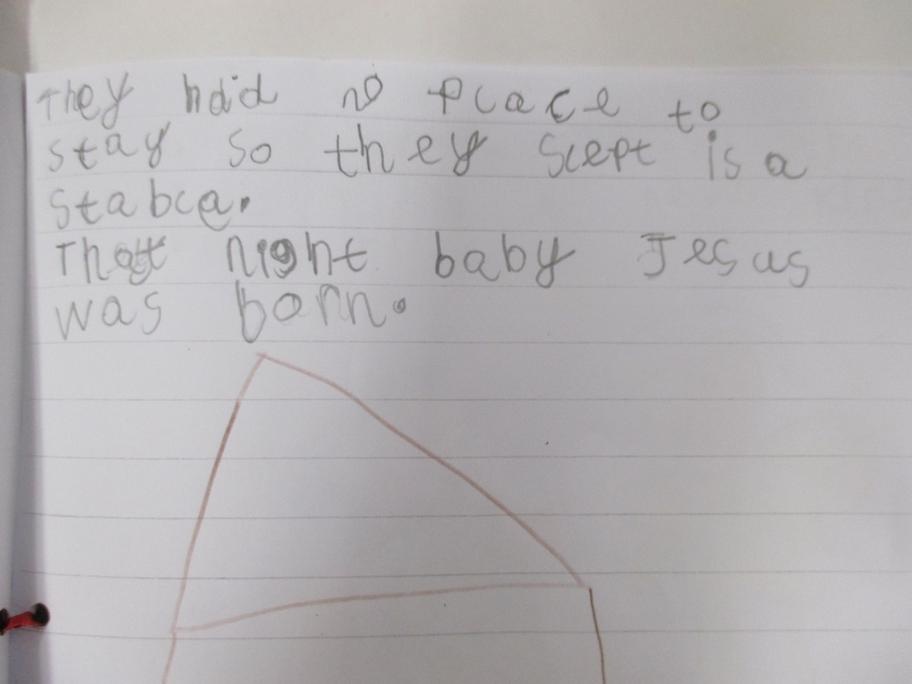 They had no place to
stay so they slept is a
stable.
That night baby Jesus
was born.